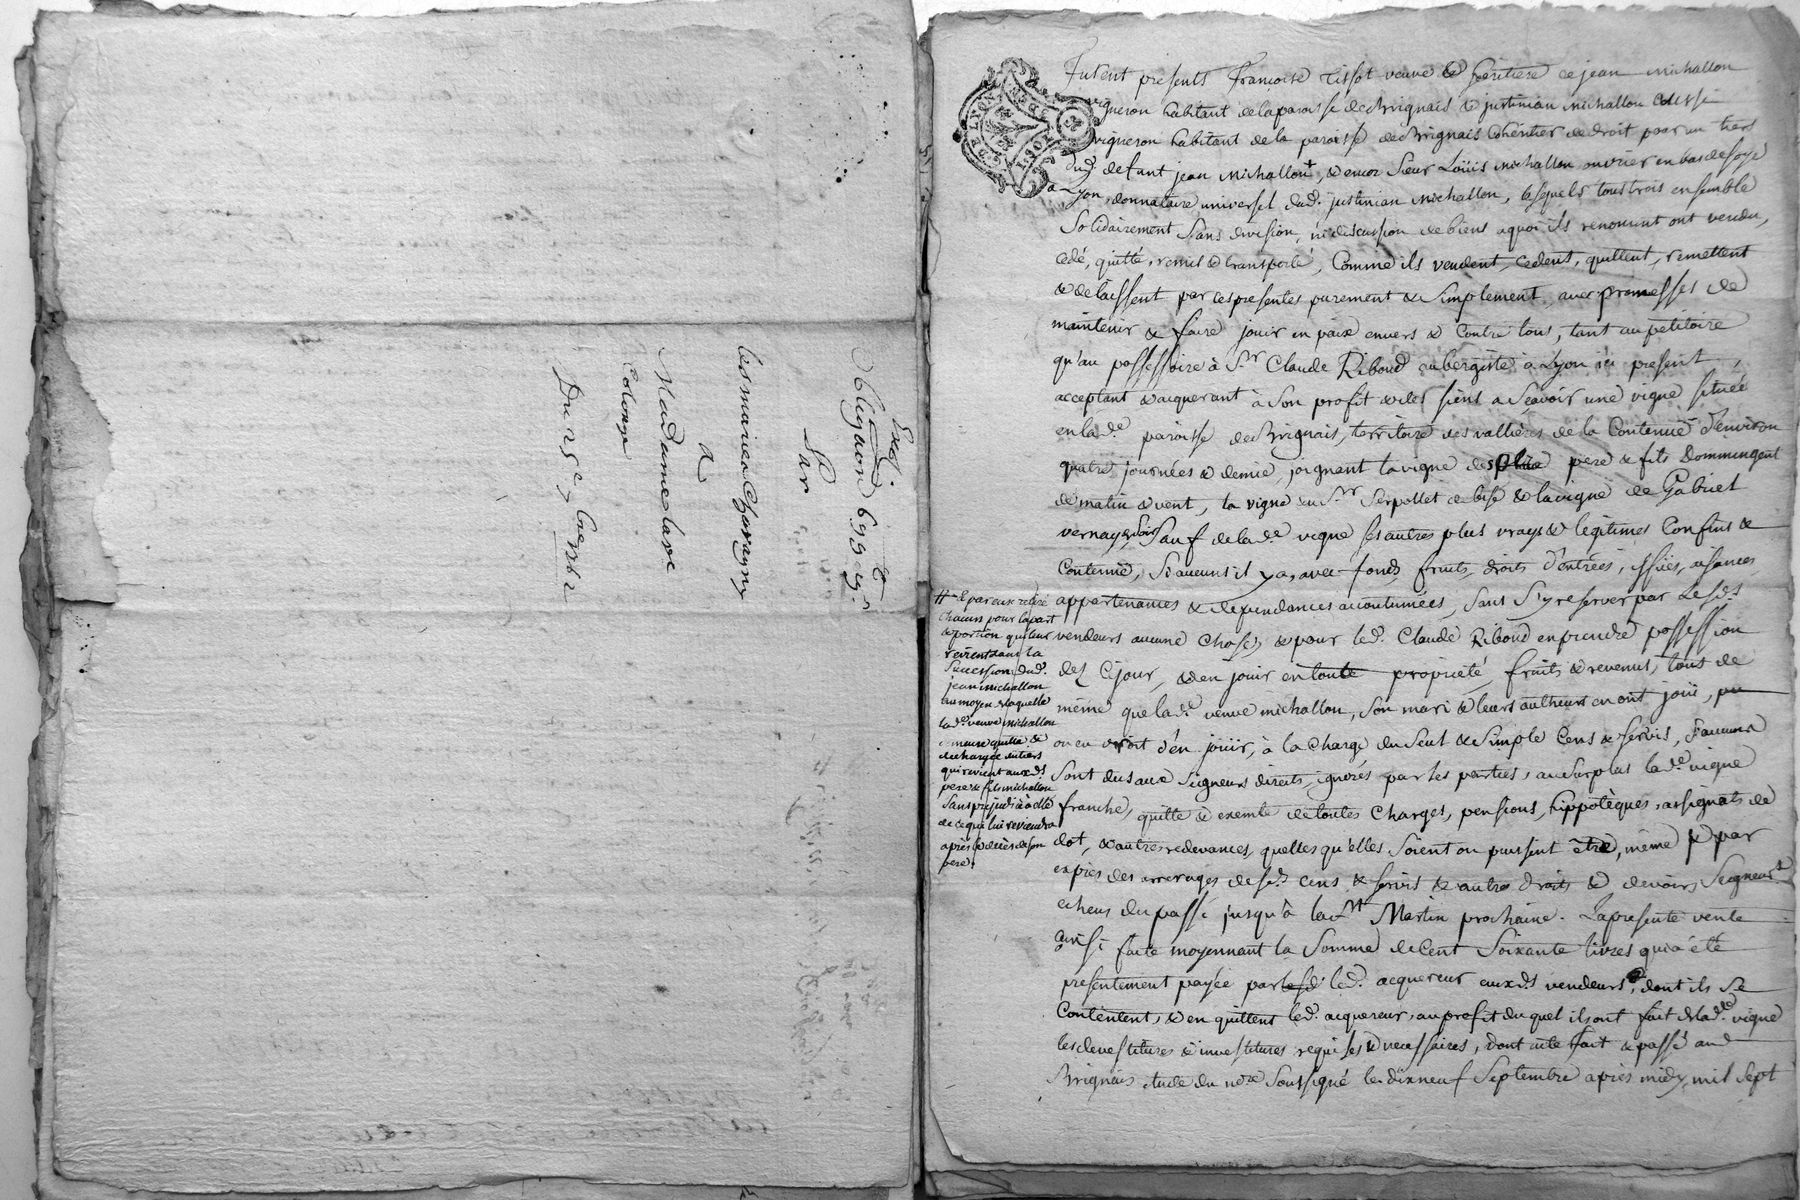 Exp.on
obligaon 69 g
par
les maire Charagny
a
Madame lave
Colonge
Du 25e 7bre
G. DE LYON
Furent presents françoise Tissot veuve & heritiere de jean michallon
vigneron habitant de la paroisse de Brignais & justinian michallon aussi
vigneron habitant de la paroisse de Brignais cohéritier de droit pour un tiers
dud. defunt jean Michallon + & encor Sieur Loüis michallon ouvrier en bas de soye
a Lyon, donnataire universel dud. justinian michallon, lesquels tous trois ensemble
Solidairement sans division, ni discussion de biens a quoi ils renoncent ont vendu,
cedé, quitté, remis & transporté, Comme ils vendent, cedent, quittent, remettent
& delaissent par ces presentes purement & Simplement avec promesses de
maintenir & faire jouir en paix envers & Contre tous, tant au petitoire
qu'au possessoire à Sr. Claude Riboud aubergiste à Lyon ici present,
acceptant & acquerant à Son profit & des siens a Sçavoir une vigne située
en lad.e paroisse de Brignais, territoire des vallieres de la Contenue d'environ
quatre journées & demie, joignant la vigne des père & fils Dommingent
de matin & vent, la vigne du Sr. Serpollet de bise & la vigne de Gabriel
vernay de soir Sauf de lad.e vigne ses autres plus vrays & legitimes Confins &
Contenue, Si aucuns il y a, avec fonds, fruits, droits d'entrées, issües, aisances
appartenances & dependances accoutumées, Sans S'y reserver par Lesds
vendeurs aucune Chose, & pour led. Claude Riboud en prendre possession
dez Cejour, & en jouir en toute proprieté, fruits & revenus, tous de
même que lad.e veuve michallon, son mari & leurs autheurs en ont joüi, pu
ou eu droit d'en joüir, à la Charge du Seul & Simple Cens & Servis, Si aucuns
Sont dus aux Seigneurs directs, ignorés par les parties, au Surplus lad.e vigne
franche, quitte & exempte de toutes Charges, pensions, hippotèques, assignats de
dot, & autres redevances, quelles qu'elles Soient ou puissent être, même & par
exprès des arrerages desds. cens & servis & autres droits & devoirs Seigneur.x
echeus du passé jusqu'à la St Martin prochaine. La presente vente
ainsi faite moyennant la Somme de Cent Soixante livres qui a été
presentement payée par led. acquereur auxds vendeurs, dont ils se
Contentent, & en quittent led. acquereur, au profit duquel ils ont fait de lad.e vigne
les devestitures & investitures requises & necessaires, dont acte fait & passé aud
Brignais etude du nore Soussigné le dixneuf Septembre après midy, mil Sept
# & par eux retiré
chacun pour la part
& portion qui leur
revient dans la
Succession dud.
jean michallon
au moyen de laquelle
lad.e veuve michallon
demeure quitte &
dechargée du tiers
qui revient auxds
pere & fils michallon
Sans prejudice à elle
de ce qui lui reviendra
après le deces de son
pere.